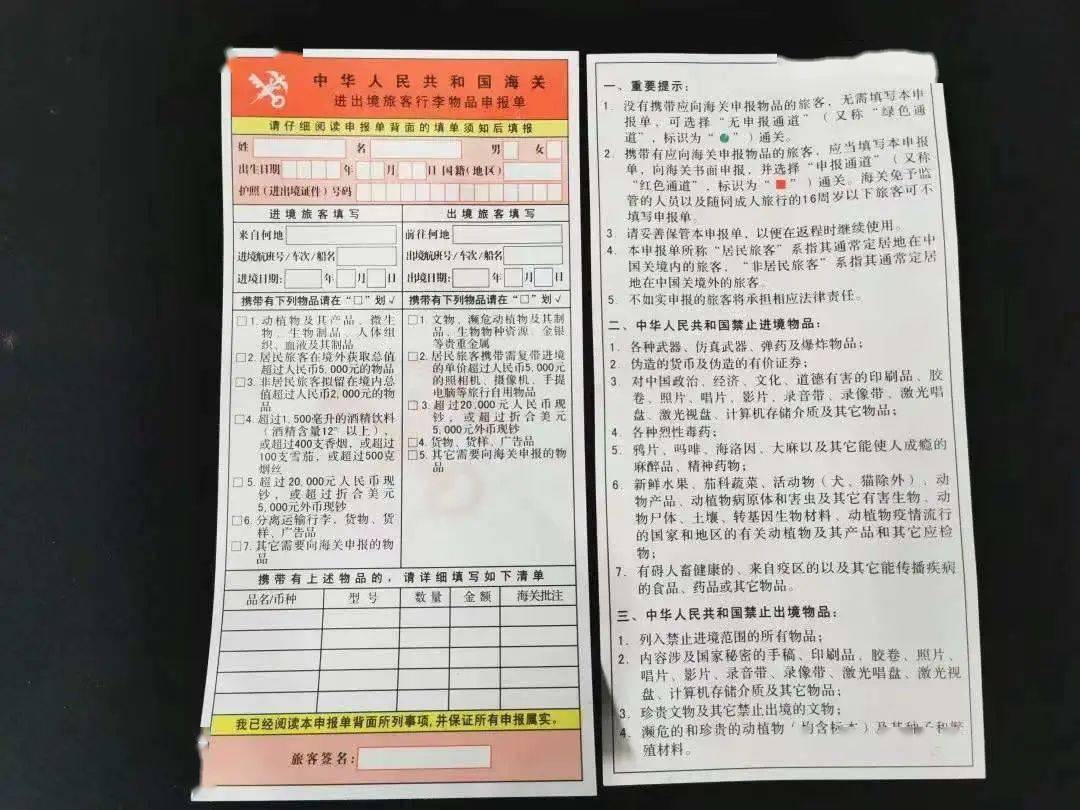 中华人民共和国海关
进出境旅客行李物品申报单
请仔细阅读申报单背面的填单须知后填报
姓 名 男 女
出生日期 年 月 日 国籍(地区)
护照(进出境证件)号码
进境旅客填写
来自何地
进境航班号/车次/船名
进境日期: 年 月 日
携带有下列物品请在“□”划√
□1.动植物及其产品、微生
物、生物制品、人体组
织、血液及其制品
□2.居民旅客在境外获取总值
超过人民币5,000元的物品
□3.非居民旅客拟留在境内总
值超过人民币2,000元的物
品
□4.超过1,500毫升的酒精饮料
(酒精含量12°以上),
或超过400支香烟,或超过
100支雪茄,或超过500克
烟丝
□5.超过20,000元人民币现
钞,或超过折合美元
5,000元外币现钞
□6.分离运输行李,货物、货
样、广告品
□7.其它需要向海关申报的物
品
出境旅客填写
前往何地
出境航班号/车次/船名
出境日期: 年 月 日
携带有下列物品请在“□”划√
□1.文物、濒危动植物及其制
品、生物物种资源、金银
等贵重金属
□2.居民旅客携带需复带进境
的单价超过人民币5,000元
的照相机、摄像机、手提
电脑等旅行自用物品
□3.超过20,000元人民币现
钞,或超过折合美元
5,000元外币现钞
□4.货物、货样、广告品
□5.其它需要向海关申报的物
品
携带有上述物品的,请详细填写如下清单
品名/币种 型号 数量 金额 海关批注
我已经阅读本申报单背面所列事项,并保证所有申报属实。
旅客签名:
一、重要提示:
1. 没有携带应向海关申报物品的旅客,无需填写本申
报单,可选择“无申报通道”(又称“绿色通
道”,标识为“●”)通关。
2. 携带有应向海关申报物品的旅客,应当填写本申报
单,向海关书面申报,并选择“申报通道”(又称
“红色通道”,标识为“■”)通关。海关免予监
管的人员以及随同成人旅行的16周岁以下旅客可不
填写申报单。
3. 请妥善保管本申报单,以便在返程时继续使用。
4. 本申报单所称“居民旅客”系指其通常定居地在中
国关境内的旅客,“非居民旅客”系指其通常定居
地在中国关境外的旅客。
5. 不如实申报的旅客将承担相应法律责任。
二、中华人民共和国禁止进境物品:
1. 各种武器、仿真武器、弹药及爆炸物品;
2. 伪造的货币及伪造的有价证券;
3. 对中国政治、经济、文化、道德有害的印刷品、胶
卷、照片、唱片、影片、录音带、录像带、激光唱
盘、激光视盘、计算机存储介质及其它物品;
4. 各种烈性毒药;
5. 鸦片、吗啡、海洛因、大麻以及其它能使人成瘾的
麻醉品、精神药物;
6. 新鲜水果、茄科蔬菜、活动物(犬、猫除外)、动
物产品、动植物病原体和害虫及其它有害生物、动
物尸体、土壤、转基因生物材料、动植物疫情流行
的国家和地区的有关动植物及其产品和其它应检
物;
7. 有碍人畜健康的、来自疫区的以及其它能传播疾病
的食品、药品或其它物品。
三、中华人民共和国禁止出境物品:
1. 列入禁止进境范围的所有物品;
2. 内容涉及国家秘密的手稿、印刷品、胶卷、照片、
唱片、影片、录音带、录像带、激光唱盘、激光视
盘、计算机存储介质及其它物品;
3. 珍贵文物及其它禁止出境的文物;
4. 濒危的和珍贵的动植物(均含标本)及其种子和繁
殖材料。